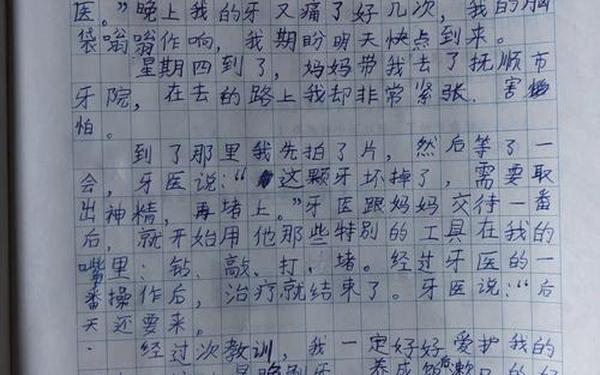 医。”晚上我的牙又痛了好几次，我的脑
袋嗡嗡作响，我期盼明天快点到来。
星期四到了，妈妈带我去了抚顺市
牙院，在去的路上我却非常紧张、害
怕。
到了那里我先拍了片，然后等了一
会，牙医说：“这颗牙坏掉了，需要取
出神精，再堵上。”牙医跟妈妈交待一番
后，就开始用他那些特别的工具在我的
嘴里：钻、敲、打、堵。经过牙医的一
番操作后，治疗就结束了。牙医说：“后
天还要来。
经过次教训，我一定好好爱护我的
早晚刷牙，养成饭后漱口的好